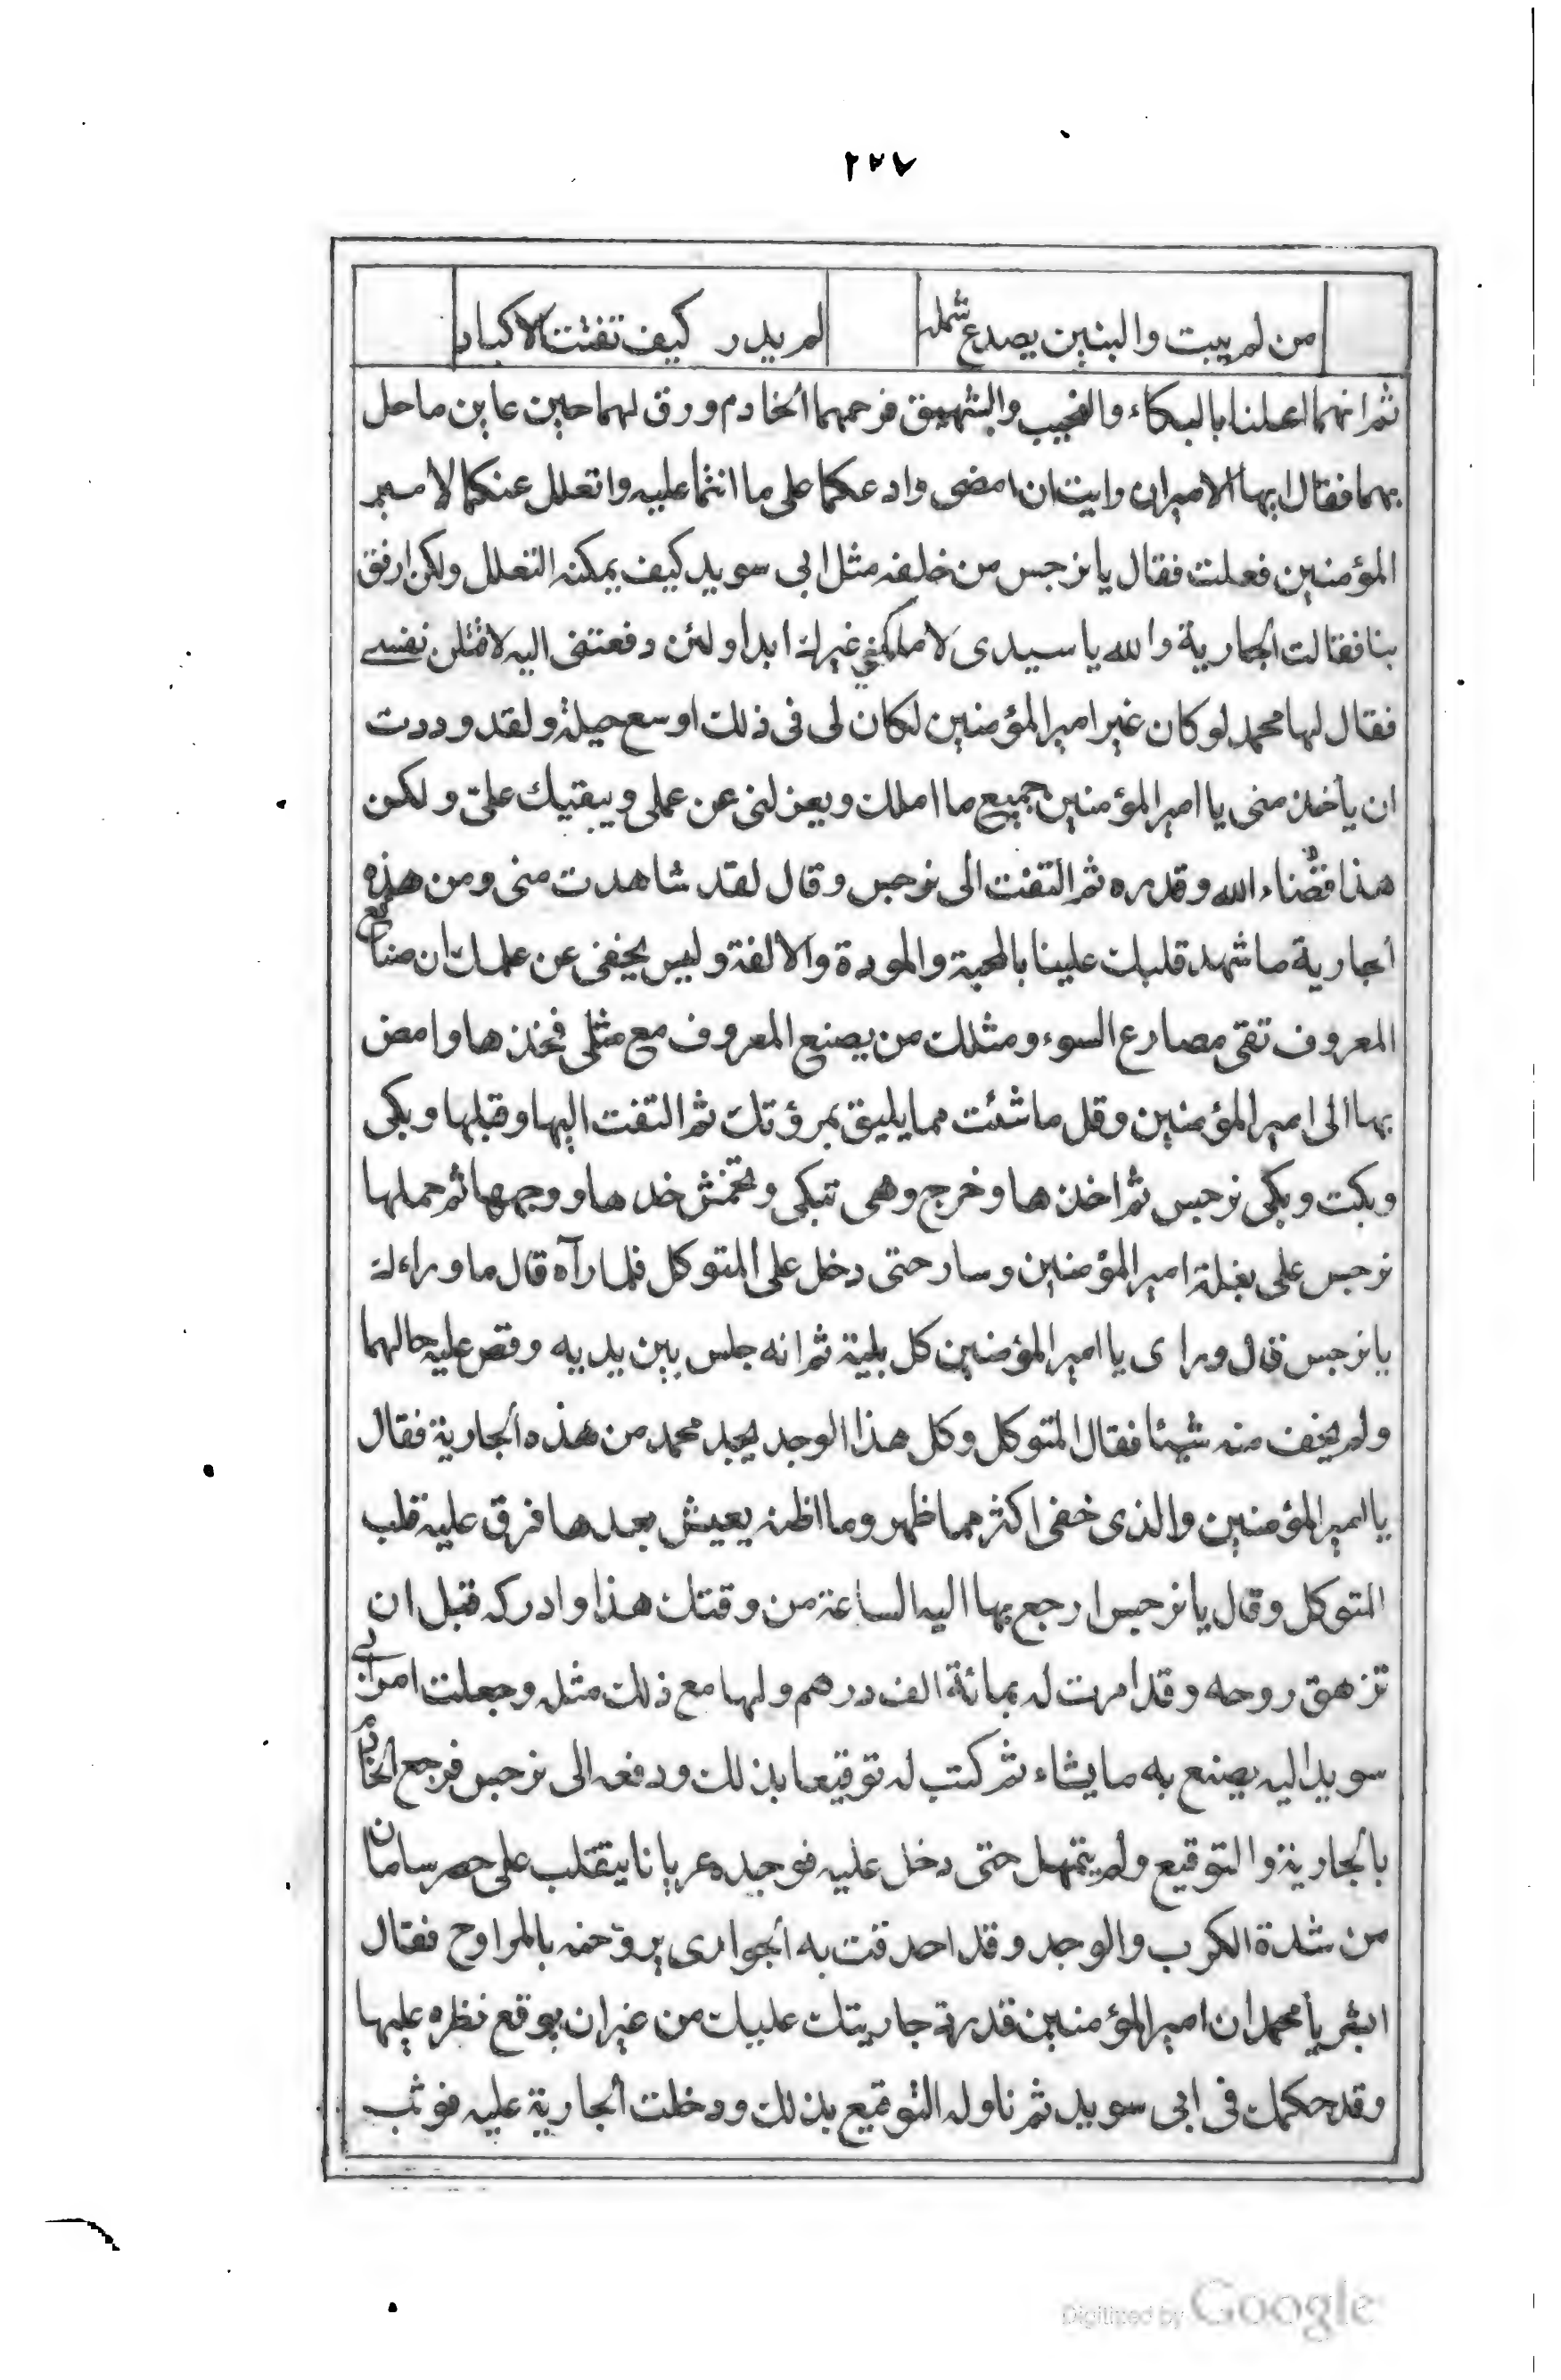 ٢٣٧
من لم يبت والبين يصدع شمله لم يدر كيف تفتت الاكباد
ثم انهما اعلنا بالبكاء والنحيب والشهيق فرحمهما الخادم ورق لهما حين عاين ما حل
بهما فقال ايها الاميران رايت ان امضى وادعكما على ما انتما عليه واتعلل عنكما لامير
المؤمنين فعلت فقال يا نرجس من خلفه مثل ابى سويد كيف يمكنه التعلل ولكن ارفق
بنا فقالت الجارية والله يا سيدى لا ملكنى غيرك ابدا ولئن دفعتنى اليه لاقتلن نفسى
فقال لها محمد لو كان غير امير المؤمنين لكان لى فى ذلك اوسع حيلة ولقد وددت
ان يأخذ منى يا امير المؤمنين جميع ما املك ويعزلنى عن عملى ويبقيك علىّ ولكن
هذا قضاء الله وقدره ثم التفت الى نرجس وقال لقد شاهدت منى ومن هذه
الجارية ما شهد قلبك علينا بالمحبة والمودة والالفة وليس يخفى عن علمك ان صنائع
المعروف تقى مصارع السوء ومثلك من يصنع المعروف مع مثلى فخذها وامض
بها الى امير المؤمنين وقل ما شئت مما يليق بمرؤتك ثم التفت اليها وقبلها وبكى
وبكت وبكى نرجس ثم اخذها وخرج وهى تبكى وتخمش خدها ووجهها ثم حملها
نرجس على بغلة امير المؤمنين وسار حتى دخل على المتوكل فلما رآه قال ما وراءك
يا نرجس قال وراى يا امير المؤمنين كل بلية ثم انه جلس بين يديه وقص عليه حالهما
ولم يخف منه شيئا فقال المتوكل وكل هذا الوجد يجد محمد من هذه الجارية فقال
يا امير المؤمنين والذى خفى اكثر مما ظهر وما اظنه يعيش بعدها فرق عليه قلب
المتوكل وقال يا نرجس ارجع بها اليه الساعة من وقتك هذا وادركه قبل ان
تزهق روحه وقد امرت له بمائة الف درهم ولها مع ذلك مثله وجعلت امر ابى
سويد اليه يصنع به ما يشاء ثم كتب له توقيعا بذلك ودفعه الى نرجس فرجع الخادم
بالجارية والتوقيع ولم يتمهل حتى دخل عليه فوجده عريانا يتقلب على حصر سامان
من شدة الكرب والوجد وقد احدقت به الجوارى يروحنه بالمراوح فقال
ابشر يا محمد ان امير المؤمنين قد رد جاريتك عليك من غير ان يوقع نظره عليها
وقد حكمك فى ابى سويد ثم ناوله التوقيع بذلك ودخلت الجارية عليه فوثب
Digitized by Google